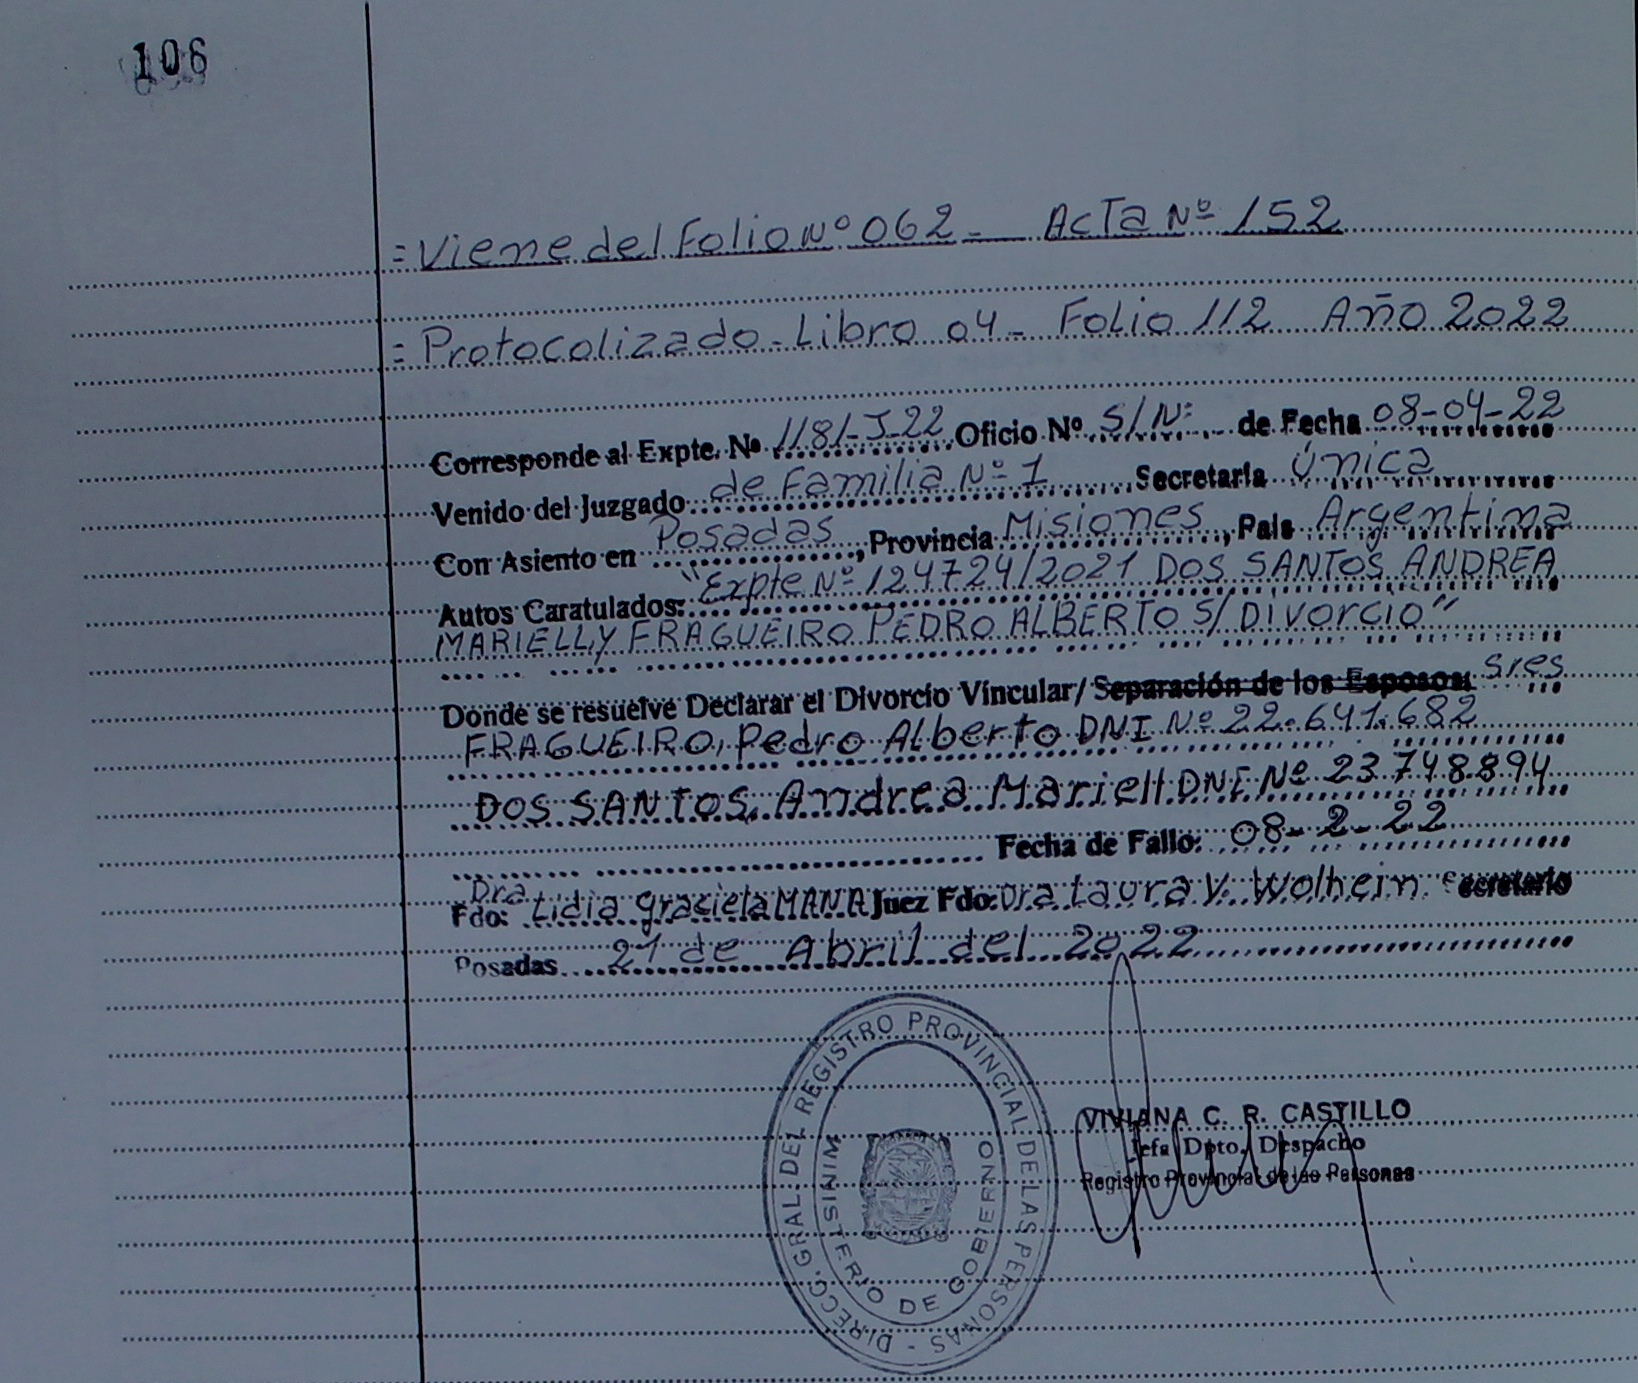 106
= Viene del Folio Nº 062 - Acta Nº 152
= Protocolizado - Libro 04 - Folio 112 Año 2022
Corresponde al Expte. Nº 1181-J-22 Oficio Nº S/Nº de Fecha 08-04-22
Venido del Juzgado de Familia Nº 1 Secretaría Única
Con Asiento en Posadas, Provincia Misiones, País Argentina
Autos Caratulados: "Expte Nº 124724/2021 DOS SANTOS ANDREA
MARIELLY FRAGUEIRO PEDRO ALBERTO S/ DIVORCIO"
Donde se resuelve Declarar el Divorcio Vincular/ Separación de los Esposos: Sres
FRAGUEIRO, Pedro Alberto DNI Nº 22.641.682
DOS SANTOS, Andrea Mariell DNI Nº 23.748.894
Fecha de Fallo: 08-2-22
Fdo: Dra Lidia Graciela Juez Fdo: Dra Laura V. Wolhein Secretario
Posadas 21 de Abril del 2022
DIRECC. GRAL. DEL REGISTRO PROVINCIAL DE LAS PERSONAS -
MINISTERIO DE GOBIERNO
VIVIANA C. R. CASTILLO
Jefa Dpto. Despacho
Registro Provincial de las Personas